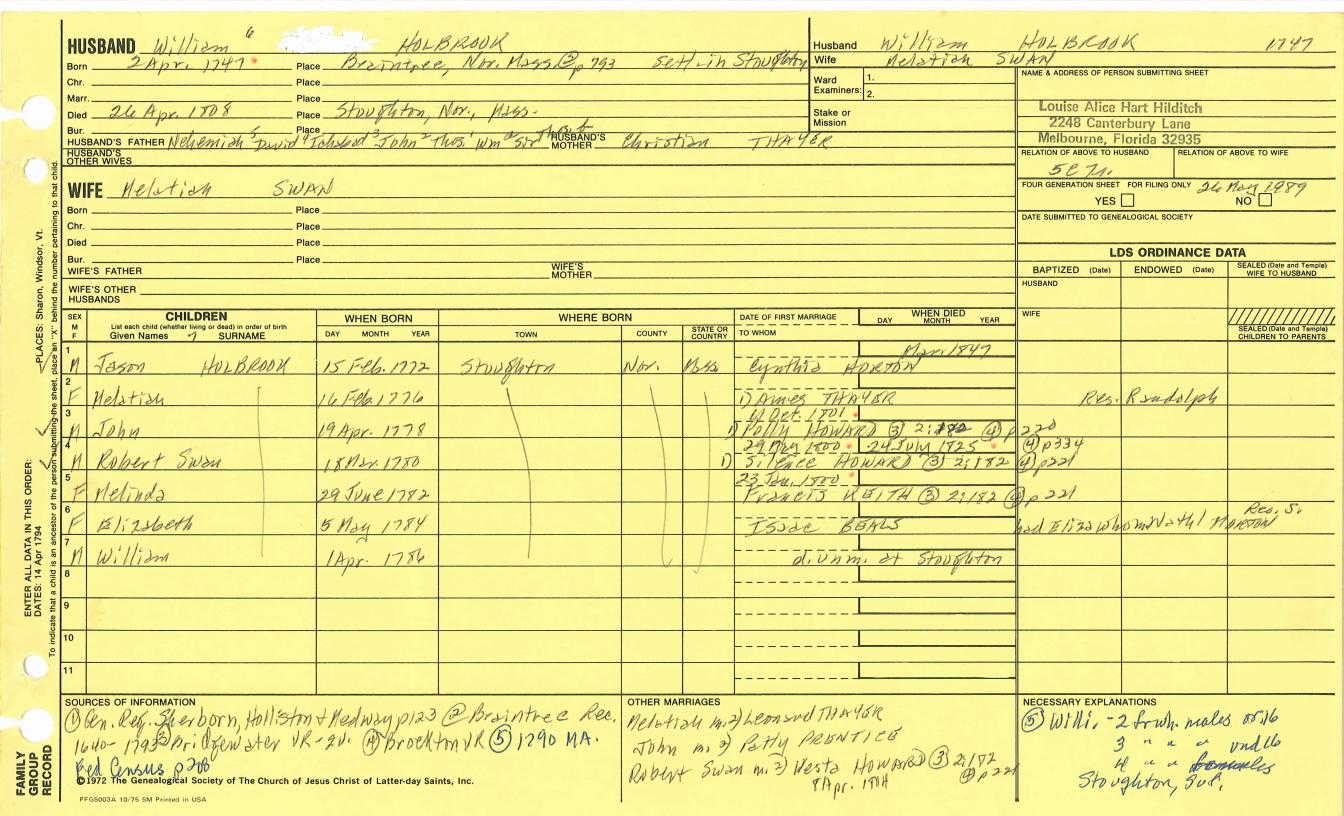 HUSBAND William 6 HOLBROOK
Born 2 Apr. 1747 Place Braintree, Nor. Mass. ② p 793 settl. in Stoughton
Chr. Place
Marr. Place
Died 26 Apr. 1808 Place Stoughton, Nor., Mass.
Bur. Place
HUSBAND'S FATHER Nehemiah 5 David 4 Ichabod 3 John 2 Thos. 1 Wm HUSBAND'S MOTHER Christian THAYER
HUSBAND'S OTHER WIVES
Husband William HOLBROOK 1747
Wife Melatiah SWAN
Ward Examiners: 1.
2.
Stake or Mission
NAME & ADDRESS OF PERSON SUBMITTING SHEET
Louise Alice Hart Hilditch
2248 Canterbury Lane
Melbourne, Florida 32935
RELATION OF ABOVE TO HUSBAND RELATION OF ABOVE TO WIFE
FOUR GENERATION SHEET FOR FILING ONLY 26 May 1989
YES NO
DATE SUBMITTED TO GENEALOGICAL SOCIETY
WIFE Melatiah SWAN
Born Place
Chr. Place
Died Place
Bur. Place
WIFE'S FATHER WIFE'S MOTHER
WIFE'S OTHER HUSBANDS
LDS ORDINANCE DATA
BAPTIZED (Date) ENDOWED (Date) SEALED (Date and Temple) WIFE TO HUSBAND
HUSBAND
WIFE
SEALED (Date and Temple) CHILDREN TO PARENTS
SEX M F
CHILDREN
List each child (whether living or dead) in order of birth
Given Names 7 SURNAME
WHEN BORN
DAY MONTH YEAR
WHERE BORN
TOWN COUNTY STATE OR COUNTRY
DATE OF FIRST MARRIAGE
TO WHOM
WHEN DIED
DAY MONTH YEAR
1 Mar. 1847
M Jason HOLBROOK 15 Feb. 1772 Stoughton Nor. Mass Cynthia HORTON
2
F Melatiah 16 Feb. 1776 1) Ames THAYER Res. Randolph
3 11 Oct. 1801
M John 19 Apr. 1778 1) Polly HOWARD ③ 2:182 ④ p 220
4 29 May 1800 24 July 1825 ④ p334
M Robert Swan 18 Mar. 1780 1) Silence HOWARD ③ 2:182 ④ p221
5 23 Jan. 1800
F Melinda 29 June 1782 Francis KEITH ③ 2:182 ④ p 221
6 Res. S.
F Elizabeth 5 May 1784 Isaac BEALS had Eliza who m. Nath'l MORTON
7
M William 1 Apr. 1786 d. unm. at Stoughton
8
9
10
11
SOURCES OF INFORMATION
① Gen. Reg. Sherborn, Holliston & Medway p123 ② Braintree Rec.
1640-1793 ③ Bridgewater VR-2v. ④ Brockton VR ⑤ 1790 MA.
Fed Census p 208
©1972 The Genealogical Society of The Church of Jesus Christ of Latter-day Saints, Inc.
PFGS003A 10/75 5M Printed in USA
OTHER MARRIAGES
Melatiah m. 2) Leonard THAYER
John m. 2) Patty PRENTICE
Robert Swan m. 2) Hesta HOWARD ③ 2:182
8 Apr. 1804 ④ p 221
NECESSARY EXPLANATIONS
⑤ Willi. - 2 fr. wh. males or. 16
3 " " " und 16
4 " " females
Stoughton, Suf.
PLACES: Sharon, Windsor, Vt.
ENTER ALL DATA IN THIS ORDER:
DATES: 14 Apr 1794
To indicate that a child is an ancestor of the person submitting the sheet, place an "X" behind the number pertaining to that child.
FAMILY GROUP RECORD